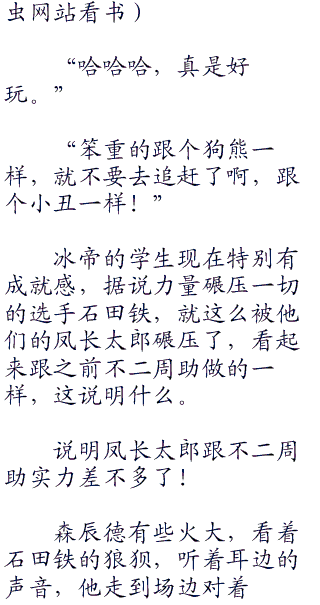 虫网站看书）
“哈哈哈，真是好
玩。”
“笨重的跟个狗熊一
样，就不要去追赶了啊，跟
个小丑一样！”
冰帝的学生现在特别有
成就感，据说力量碾压一切
的选手石田铁，就这么被他
们的凤长太郎碾压了，看起
来跟之前不二周助做的一
样，这说明什么。
说明凤长太郎跟不二周
助实力差不多了！
森辰德有些火大，看着
石田铁的狼狈，听着耳边的
声音，他走到场边对着